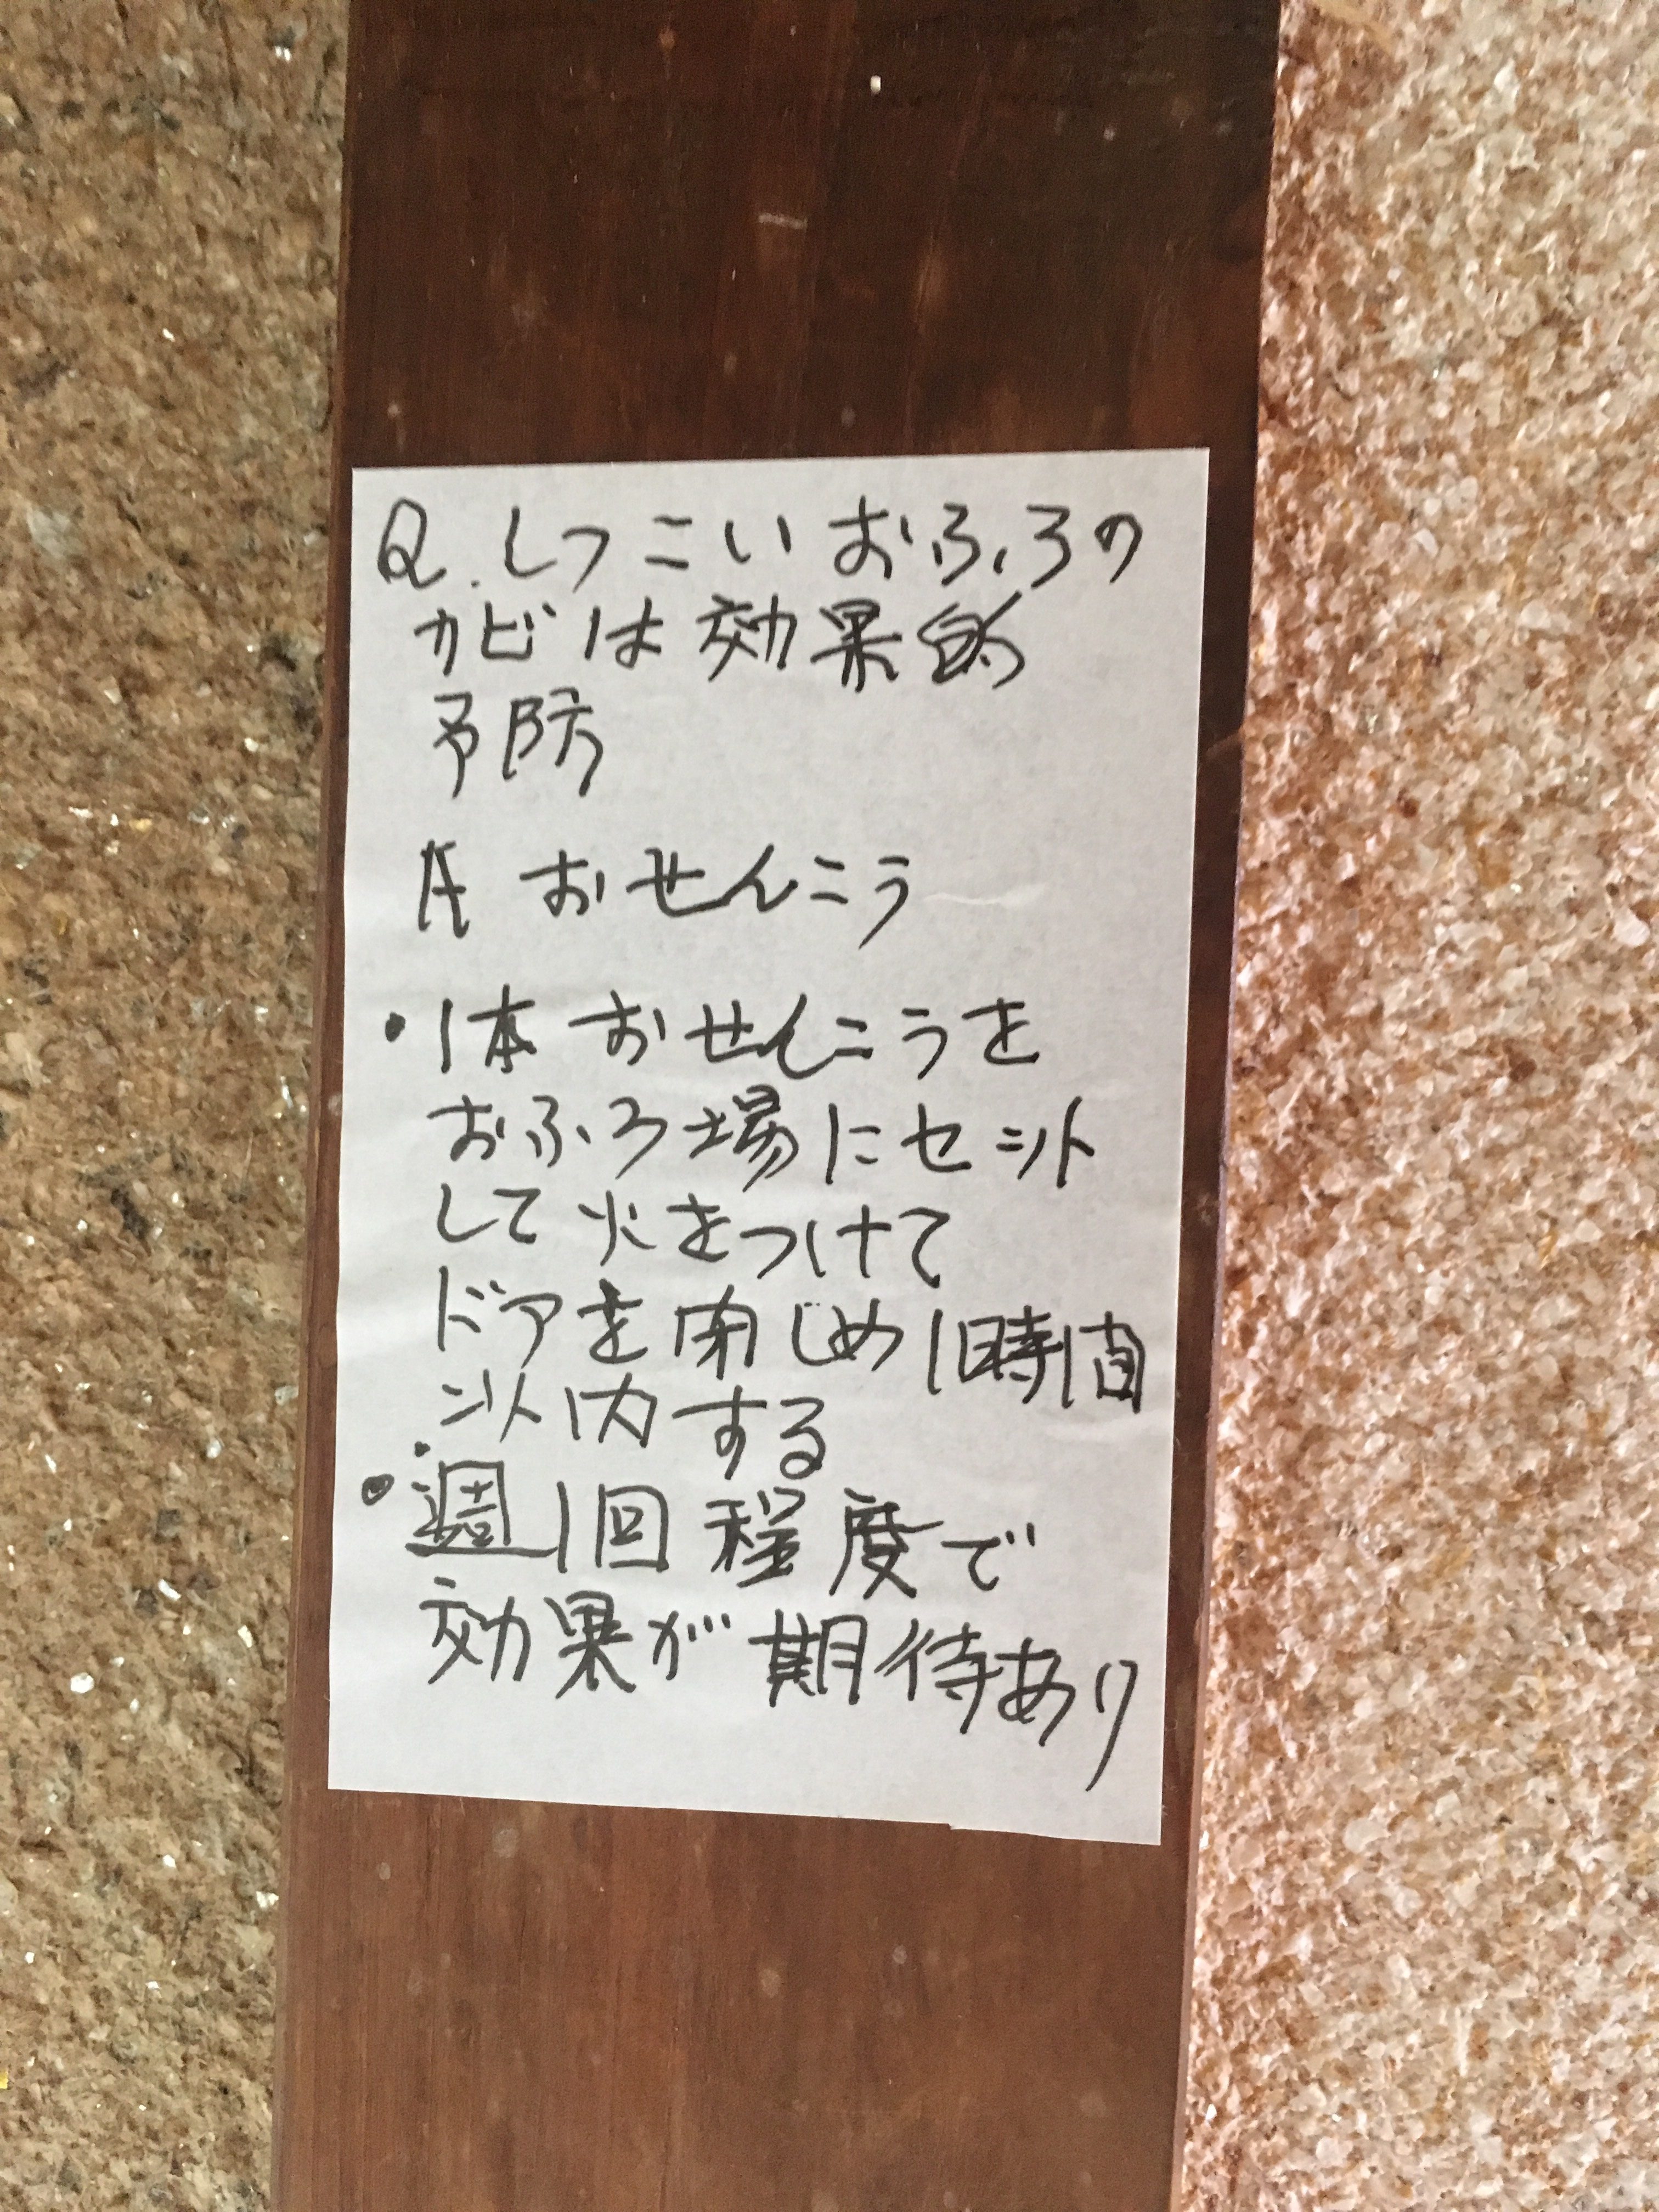 Q.しつこいおふろの
カビは効果的
予防
A おせんこう
・1本 おせんこうを
おふろ場にセット
して火をつけて
ドアを閉じめ1時間
以内する
・週1回程度で
効果が期待あり